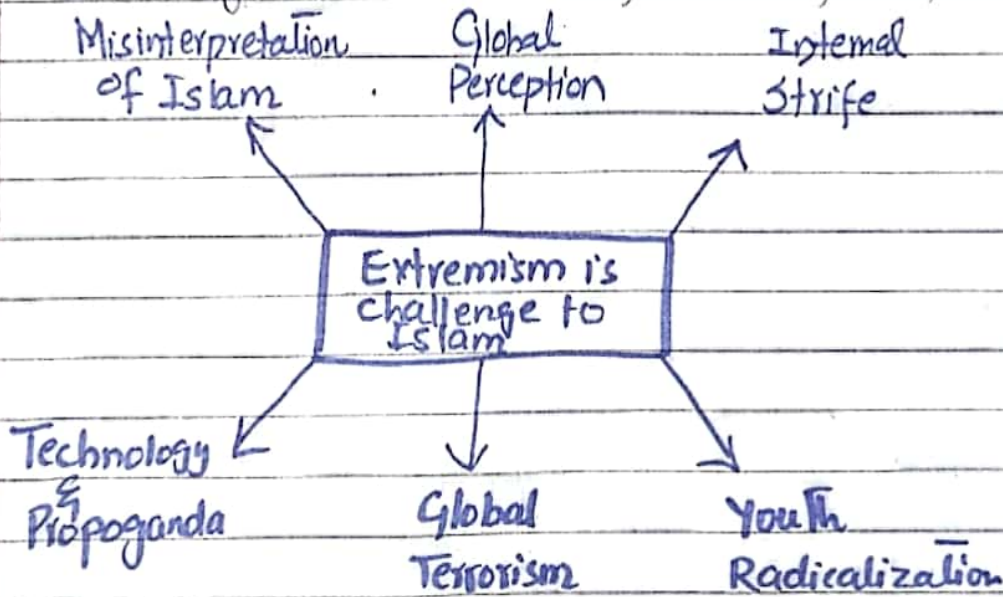 Misinterpretation
of Islam
Global
Perception
Internal
Strife
Extremism is
challenge to
Islam
Technology
&
Propoganda
Global
Terrorism
Youth
Radicalization